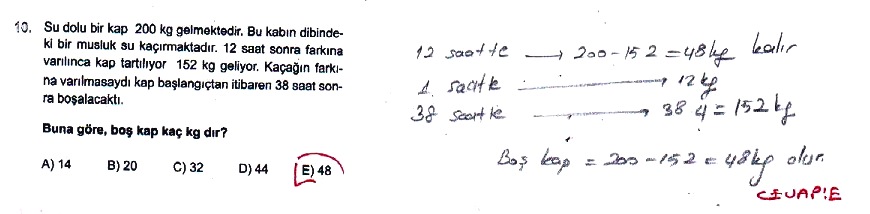 10. Su dolu bir kap 200 kg gelmektedir. Bu kabın dibinde-
ki bir musluk su kaçırmaktadır. 12 saat sonra farkına
varılınca kap tartılıyor 152 kg geliyor. Kaçağın farkı-
na varılmasaydı kap başlangıçtan itibaren 38 saat son-
ra boşalacaktı.
Buna göre, boş kap kaç kg dır?
A) 14 B) 20 C) 32 D) 44 E) 48
12 saatte → 200-152 = 48 kg kalır
1 saatte → 12 kg
38 saatte → 38 4 = 152 kg
Boş kap = 200-152 = 48 kg olur.
CEVAP:E